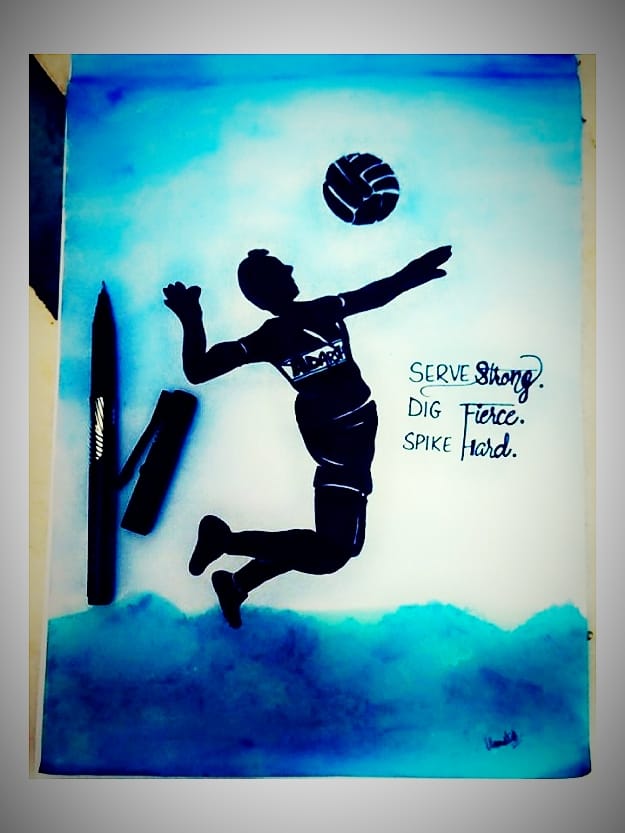 SERVE Strong.
DIG Fierce.
SPIKE Hard.